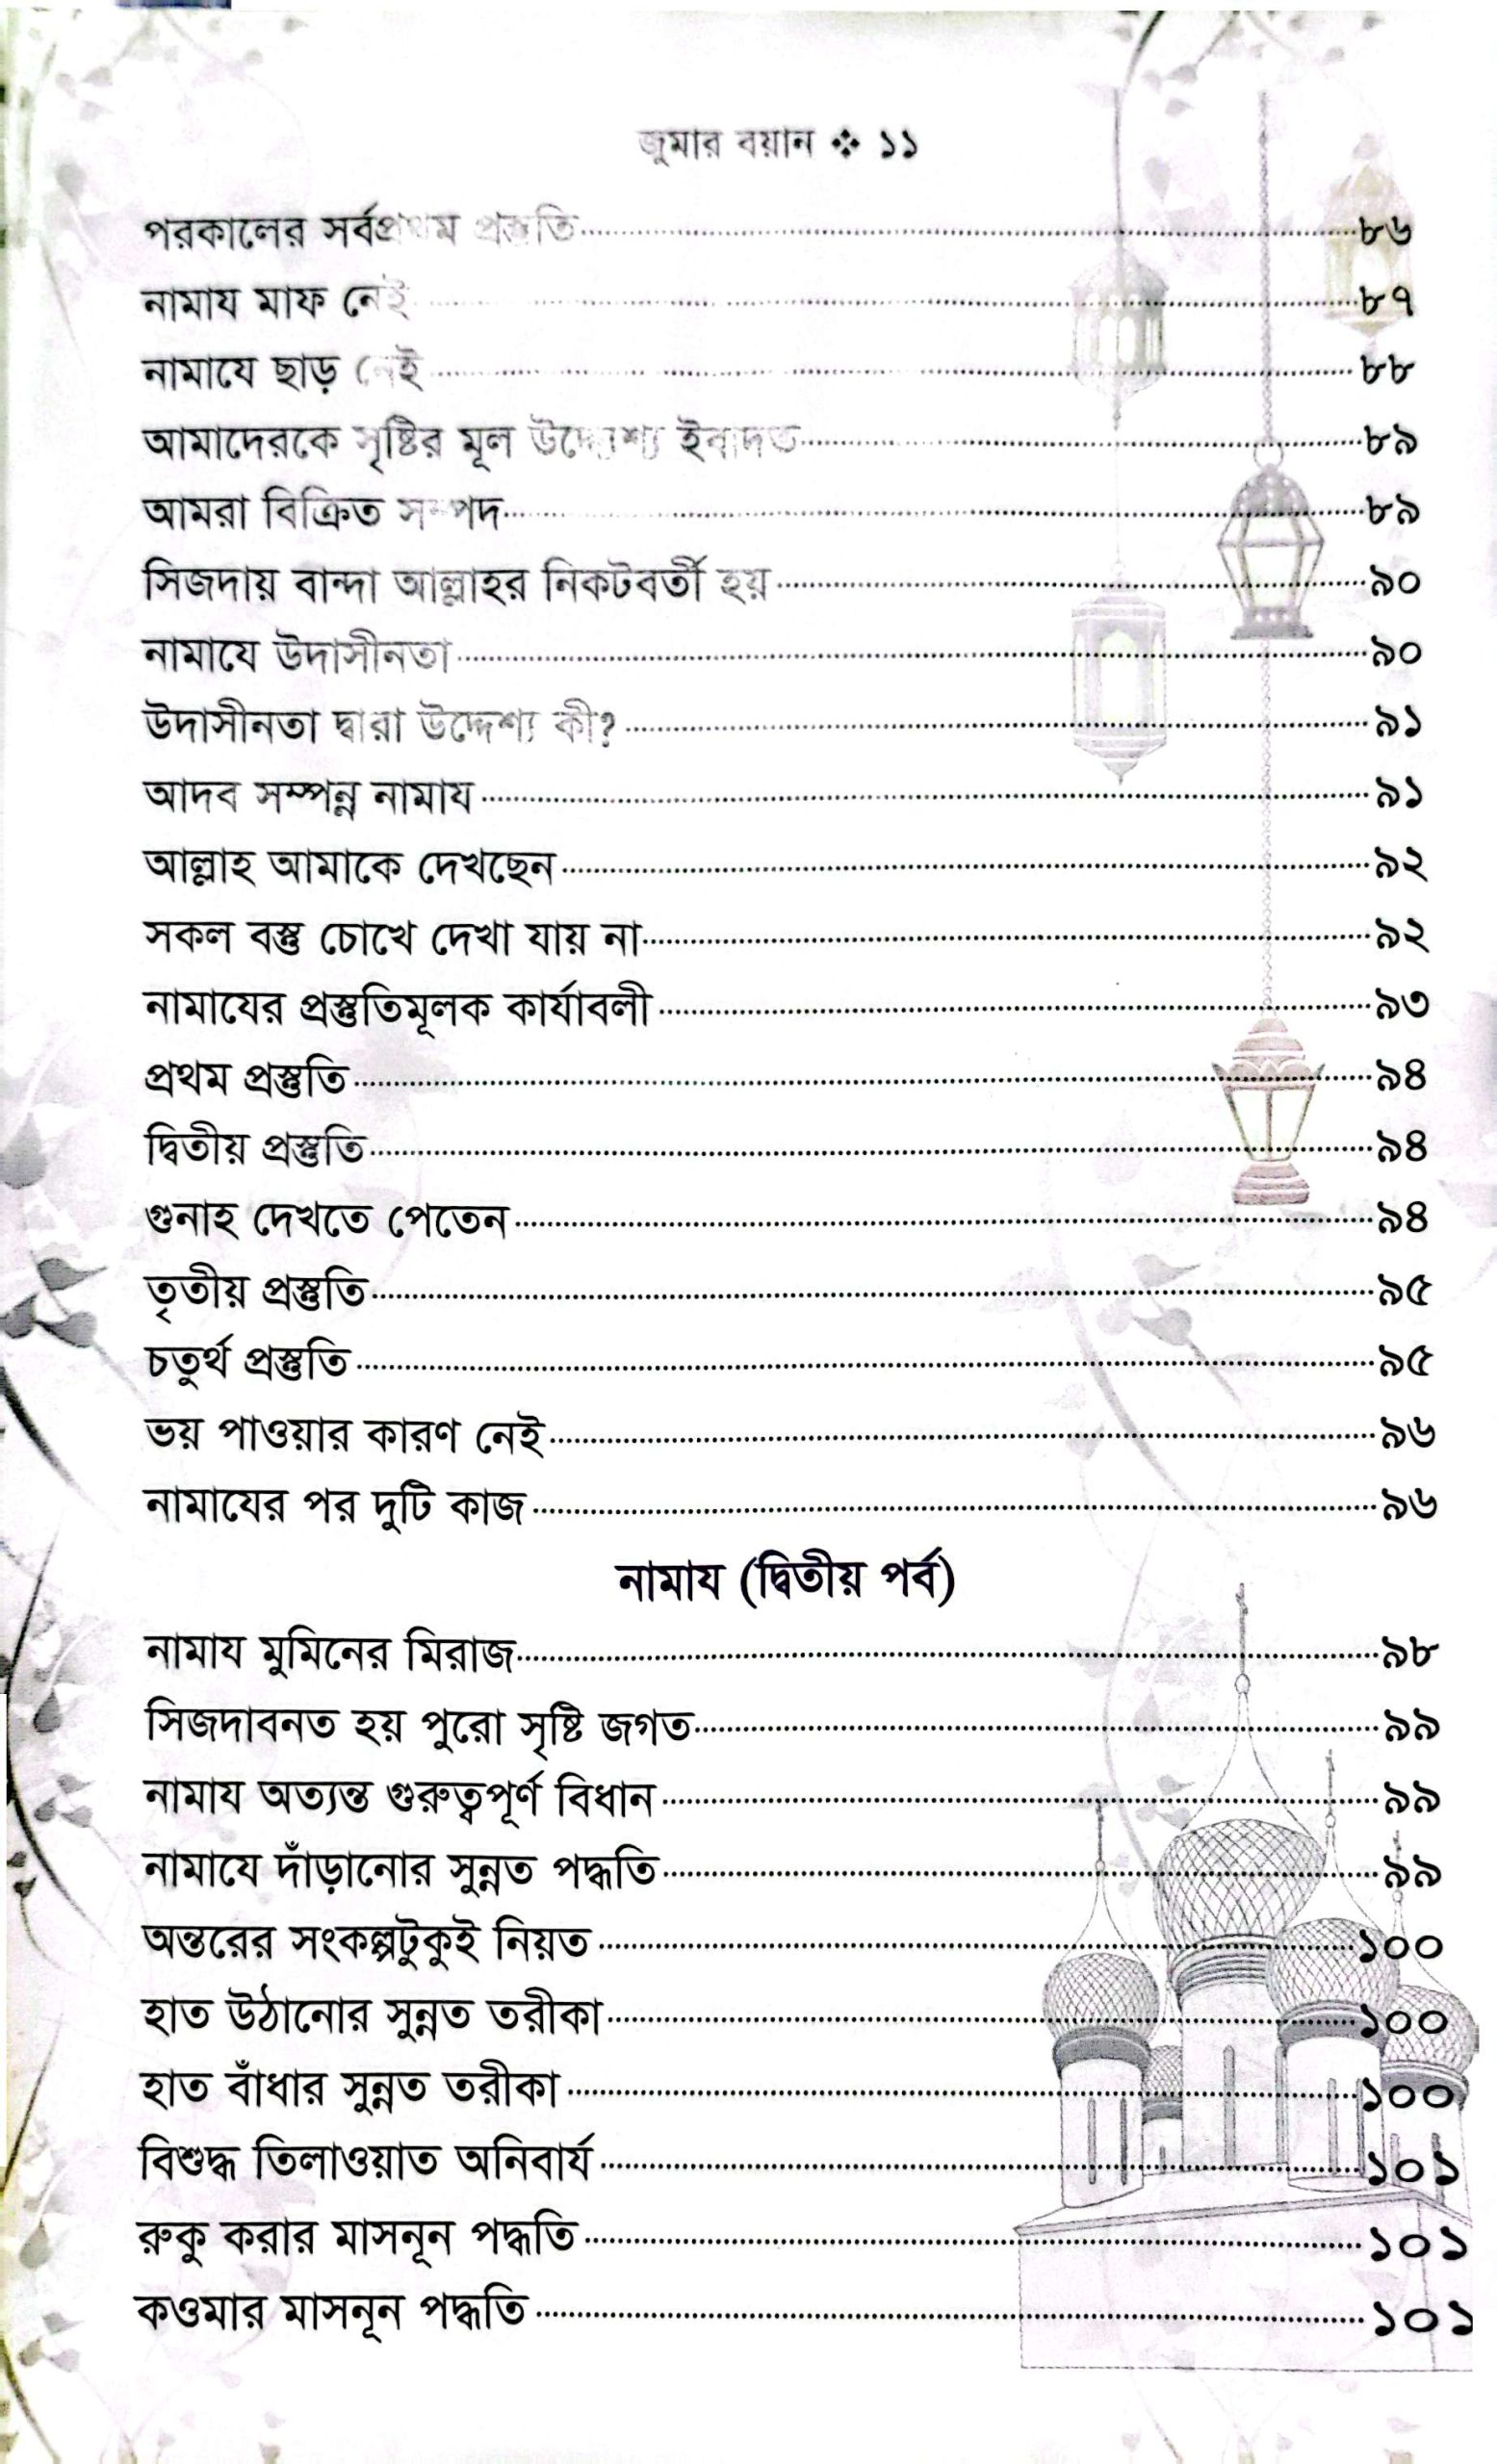 জুমার বয়ান ❖ ১১
পরকালের সর্বপ্রথম প্রস্তুতি ৮৬
নামায মাফ নেই ৮৭
নামাযে ছাড় নেই ৮৮
আমাদেরকে সৃষ্টির মূল উদ্দেশ্য ইবাদত ৮৯
আমরা বিক্রিত সম্পদ ৮৯
সিজদায় বান্দা আল্লাহর নিকটবর্তী হয় ৯০
নামাযে উদাসীনতা ৯০
উদাসীনতা দ্বারা উদ্দেশ্য কী? ৯১
আদব সম্পন্ন নামায ৯১
আল্লাহ আমাকে দেখছেন ৯২
সকল বস্তু চোখে দেখা যায় না ৯২
নামাযের প্রস্তুতিমূলক কার্যাবলী ৯৩
প্রথম প্রস্তুতি ৯৪
দ্বিতীয় প্রস্তুতি ৯৪
গুনাহ দেখতে পেতেন ৯৪
তৃতীয় প্রস্তুতি ৯৫
চতুর্থ প্রস্তুতি ৯৫
ভয় পাওয়ার কারণ নেই ৯৬
নামাযের পর দুটি কাজ ৯৬
নামায (দ্বিতীয় পর্ব)
নামায মুমিনের মিরাজ ৯৮
সিজদাবনত হয় পুরো সৃষ্টি জগত ৯৯
নামায অত্যন্ত গুরুত্বপূর্ণ বিধান ৯৯
নামাযে দাঁড়ানোর সুন্নত পদ্ধতি ৯৯
অন্তরের সংকল্পটুকুই নিয়ত ১০০
হাত উঠানোর সুন্নত তরীকা ১০০
হাত বাঁধার সুন্নত তরীকা ১০০
বিশুদ্ধ তিলাওয়াত অনিবার্য ১০১
রুকু করার মাসনূন পদ্ধতি ১০১
কওমার মাসনূন পদ্ধতি ১০১